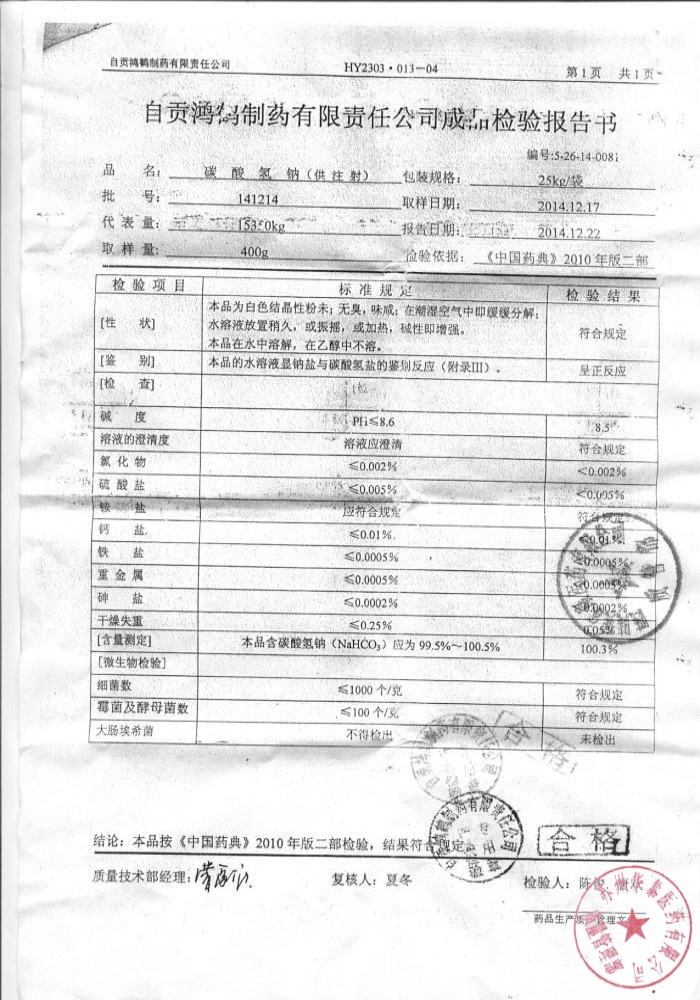 自贡鸿鹤制药有限责任公司 HY2303·013—04 第1页 共1页
自贡鸿鹤制药有限责任公司成品检验报告书
编号:5-26-14-0081
品 名: 碳 酸 氢 钠(供注射) 包装规格: 25kg/袋
批 号: 141214 取样日期: 2014.12.17
代 表 量: 报告日期: 2014.12.22
取 样 量: 400g 检验依据: 《中国药典》2010年版二部
检 验 项 目 标 准 规 定 检 验 结 果
[性 状] 本品为白色结晶性粉末;无臭,味咸;在潮湿空气中即缓缓分解;
水溶液放置稍久,或振摇,或加热,碱性即增强。 符合规定
本品在水中溶解,在乙醇中不溶。
[鉴 别] 本品的水溶液显钠盐与碳酸氢盐的鉴别反应(附录III)。 呈正反应
[检 查]
碱 度 PH≤8.6 8.5
溶液的澄清度 溶液应澄清 符合规定
氯 化 物 ≤0.002% <0.002%
硫 酸 盐 ≤0.005% <0.005%
铵 盐 应符合规定 符合规定
钙 盐 ≤0.01% <0.01%
铁 盐 ≤0.0005% <0.0005%
重 金 属 ≤0.0005% <0.0005%
砷 盐 ≤0.0002% <0.0002%
干燥失重 ≤0.25% 0.05%
[含量测定] 本品含碳酸氢钠(NaHCO₃)应为 99.5%~100.5% 100.3%
[微生物检验]
细菌数 ≤1000 个/克 符合规定
霉菌及酵母菌数 ≤100 个/克 符合规定
大肠埃希菌 不得检出 未检出
合格
结论:本品按《中国药典》2010年版二部检验,结果符合规定 合格
质量技术部经理: 复核人:夏冬 检验人:陈
药品生产质 管理文